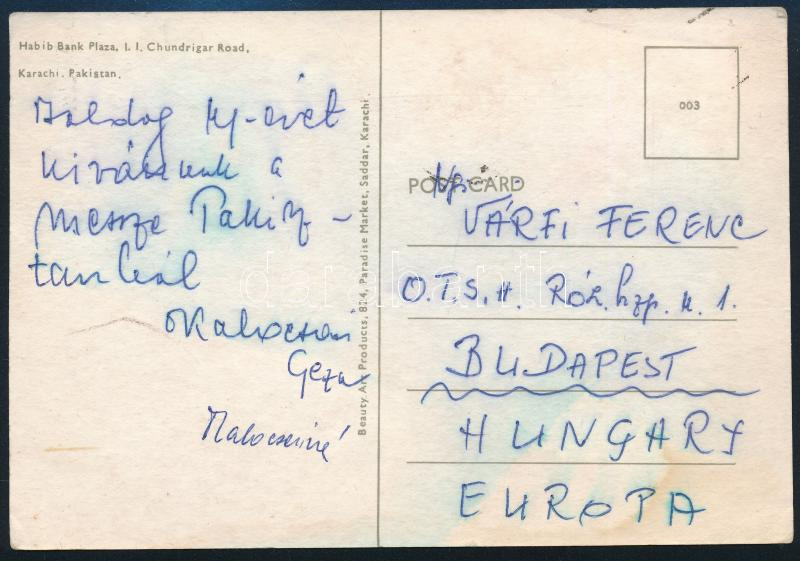 Habib Bank Plaza, I. I. Chundrigar Road,
Karachi. Pakistan.
Boldog Uj-évet
kivánunk a
messze Pakisz-
tanból
Kalocsai
Géza
Kalocsainé
Beauty Art Products, 874, Paradise Market, Saddar, Karachi.
003
POST CARD
VÁRFI FERENC
O.T.S.H. Róz. hzp. u. 1.
BUDAPEST
HUNGARY
EUROPA
darabanth